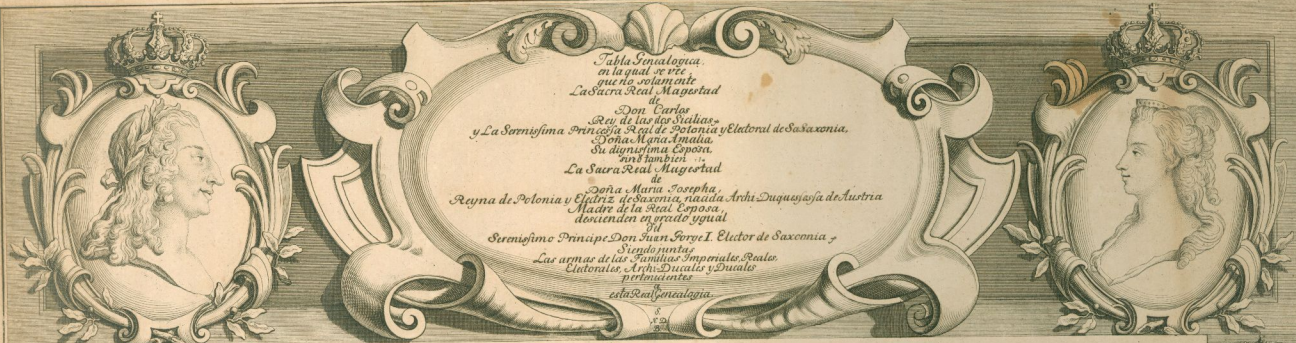 Tabla Genealogica,
en la qual se vee,
que no solamente
La Sacra Real Magestad
de
Don Carlos
Rey de las dos Sicilias,
y La Serenissima Princessa Real de Polonia y Electoral de SaSaxonia,
Doña Maria Amalia,
Su dignissima Esposa,
sino tambien
La Sacra Real Magestad
de
Doña Maria Josepha,
Reyna de Polonia y Electriz de Saxonia, nacida Archi-Duquesa de Austria
Madre de la Real Esposa,
descienden en grado ygual
del
Serenissimo Principe Don Juan Jorge I. Elector de Saxonnia
Siendo juntas
Las armas de las Familias Imperiales, Reales,
Electorales, Archi-Ducales y Ducales
pertenecientes
a
esta Real Genealogia.